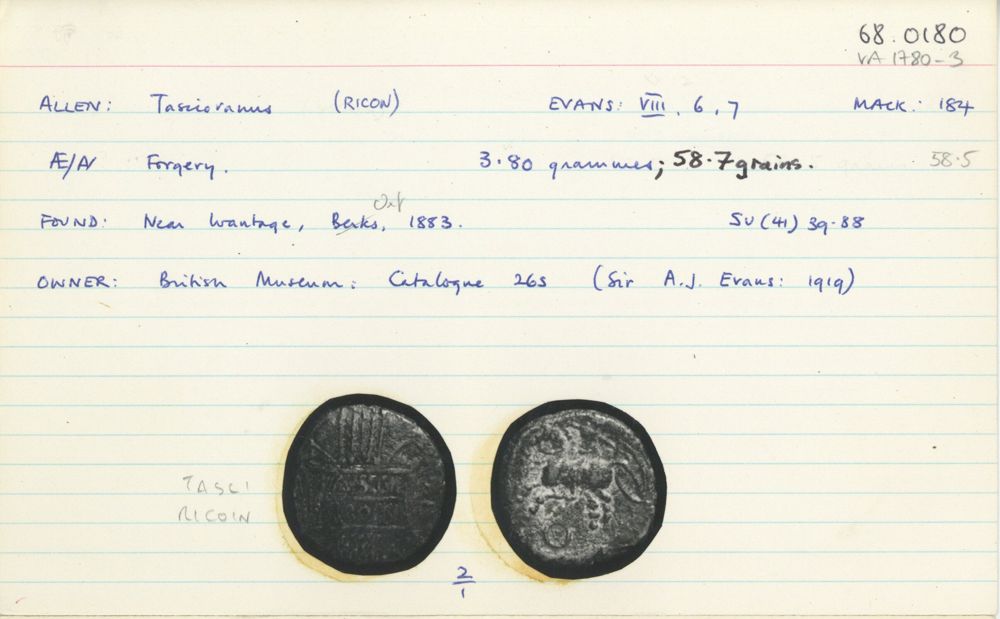 68.0180
VA 1780-3
ALLEN: Tasciovanus (RICON) EVANS: VIII, 6, 7 MACK: 184
Æ/AV Forgery. 3.80 grammes; 58.7 grains. 58.5
Oxf
FOUND: Near Wantage, Berks, 1883. SU (41) 39-88
OWNER: British Museum: Catalogue 265 (Sir A.J. Evans: 1919)
TASCI
RICOIN
2/1